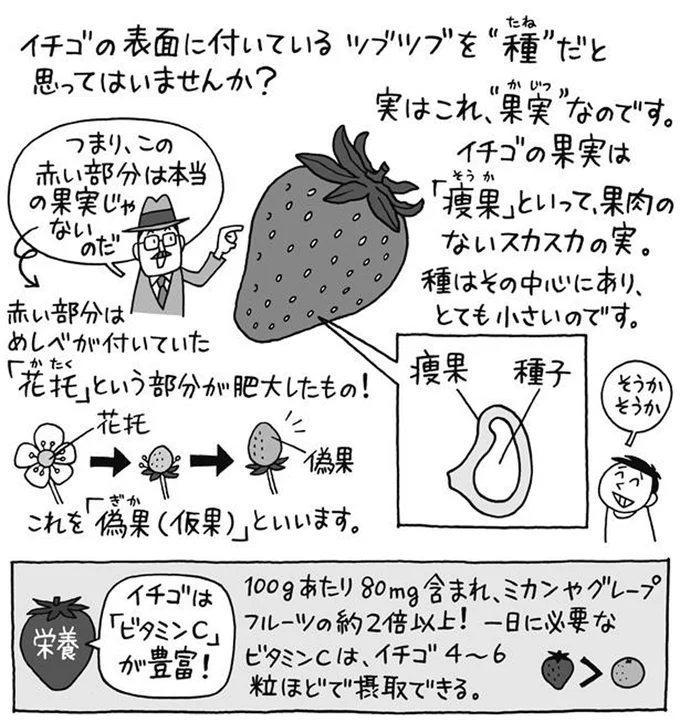 イチゴの表面に付いているツブツブを“種”だと
たね
思ってはいませんか？
実はこれ、“果実”なのです。
かじつ
イチゴの果実は
「痩果」といって、果肉の
そうか
ないスカスカの実。
種はその中心にあり、
とても小さいのです。
つまり、この
赤い部分は本当
の果実じゃ
ない
のだ
赤い部分は
めしべが付いていた
「花托」という部分が肥大したもの！
かたく
花托
偽果
これを「偽果（仮果）」といいます。
ぎか
痩果
種子
そうか
そうか
栄養
イチゴは
「ビタミンC」
が豊富！
100gあたり80mg含まれ、ミカンやグレープ
フルーツの約2倍以上！ 一日に必要な
ビタミンCは、イチゴ4〜6
粒ほどで摂取できる。
>